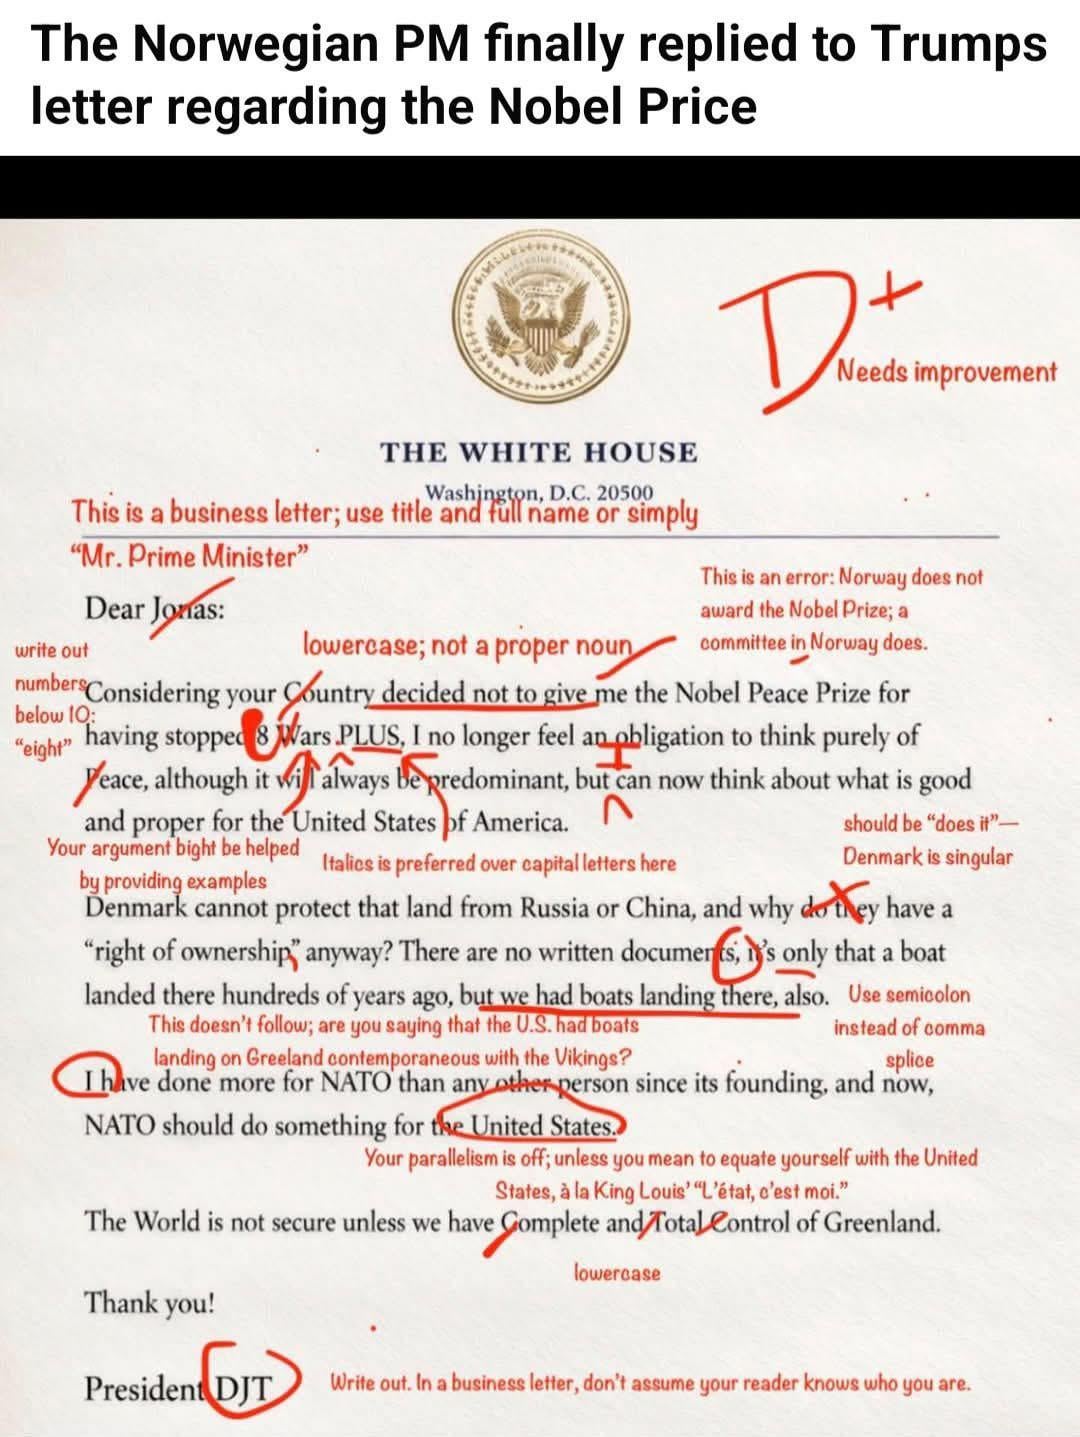 The Norwegian PM finally replied to Trumps
letter regarding the Nobel Price
D+
Needs improvement
THE WHITE HOUSE
Washington, D.C. 20500
This is a business letter; use title and full name or simply
“Mr. Prime Minister”
Dear Jonas:
This is an error: Norway does not
award the Nobel Prize; a
committee in Norway does.
lowercase; not a proper noun
write out
numbers
below 10:
“eight”
Considering your Country decided not to give me the Nobel Peace Prize for
having stopped 8 Wars PLUS, I no longer feel an obligation to think purely of
I
Peace, although it will always be predominant, but can now think about what is good
and proper for the United States of America.
Your argument bight be helped
by providing examples
Italics is preferred over capital letters here
should be “does it”—
Denmark is singular
Denmark cannot protect that land from Russia or China, and why do they have a
“right of ownership” anyway? There are no written documents, it’s only that a boat
landed there hundreds of years ago, but we had boats landing there, also.
Use semicolon
instead of comma
splice
This doesn’t follow; are you saying that the U.S. had boats
landing on Greeland contemporaneous with the Vikings?
I have done more for NATO than any other person since its founding, and now,
NATO should do something for the United States.
Your parallelism is off; unless you mean to equate yourself with the United
States, à la King Louis’ “L’état, c’est moi.”
The World is not secure unless we have Complete and Total Control of Greenland.
lowercase
Thank you!
President DJT
Write out. In a business letter, don’t assume your reader knows who you are.